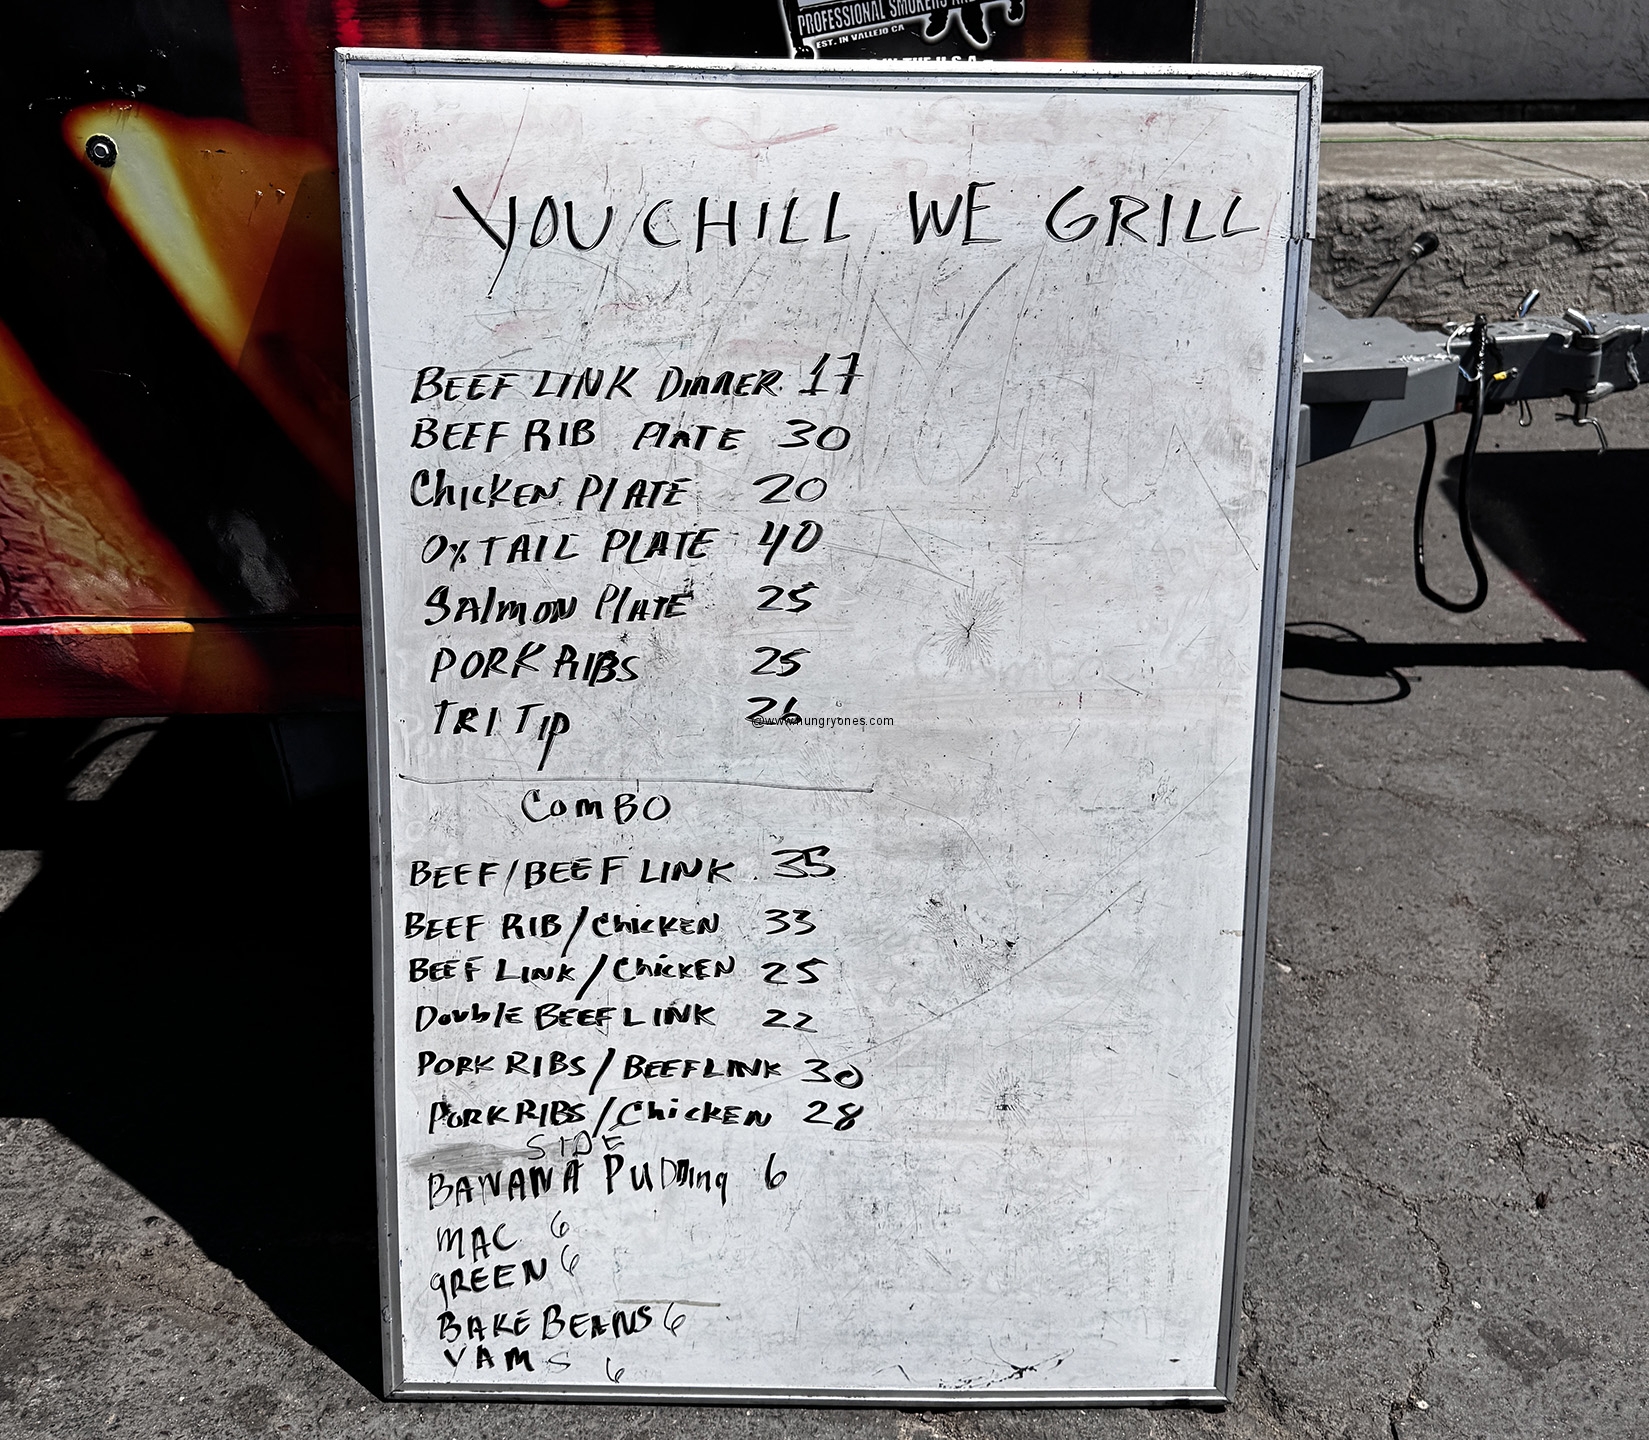 PROFESSIONAL SMOKERS
EST. IN VALLEJO CA
IN THE U.S.A
YOU CHILL WE GRILL
BEEF LINK DINNER 17
BEEF RIB PLATE 30
CHICKEN PLATE 20
OXTAIL PLATE 40
SALMON PLATE 25
PORK RIBS 25
TRI TIP 26
@www.hungryones.com
COMBO
BEEF/BEEF LINK 35
BEEF RIB/CHICKEN 33
BEEF LINK/CHICKEN 25
DOUBLE BEEF LINK 22
PORK RIBS/BEEF LINK 30
PORK RIBS/CHICKEN 28
SIDE
BANANA PUDDING 6
MAC 6
GREEN 6
BAKE BEANS 6
YAMS 6